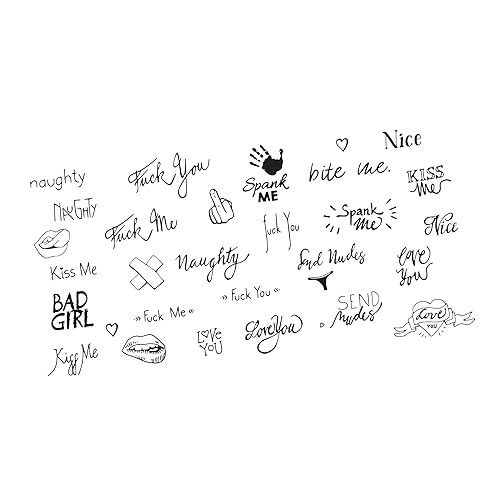 Nice
naughty
Fuck You
Spank
ME
bite me.
KISS
Me
NAUGHTY
Fuck Me
fuck You
Spank
Me!
Nice
Kiss Me
Naughty
Send Nudes
Love
You
BAD
GIRL
» Fuck Me «
» Fuck You «
SEND
nudes
Love
YOU
Kiss Me
LOVE
YOU
Love You